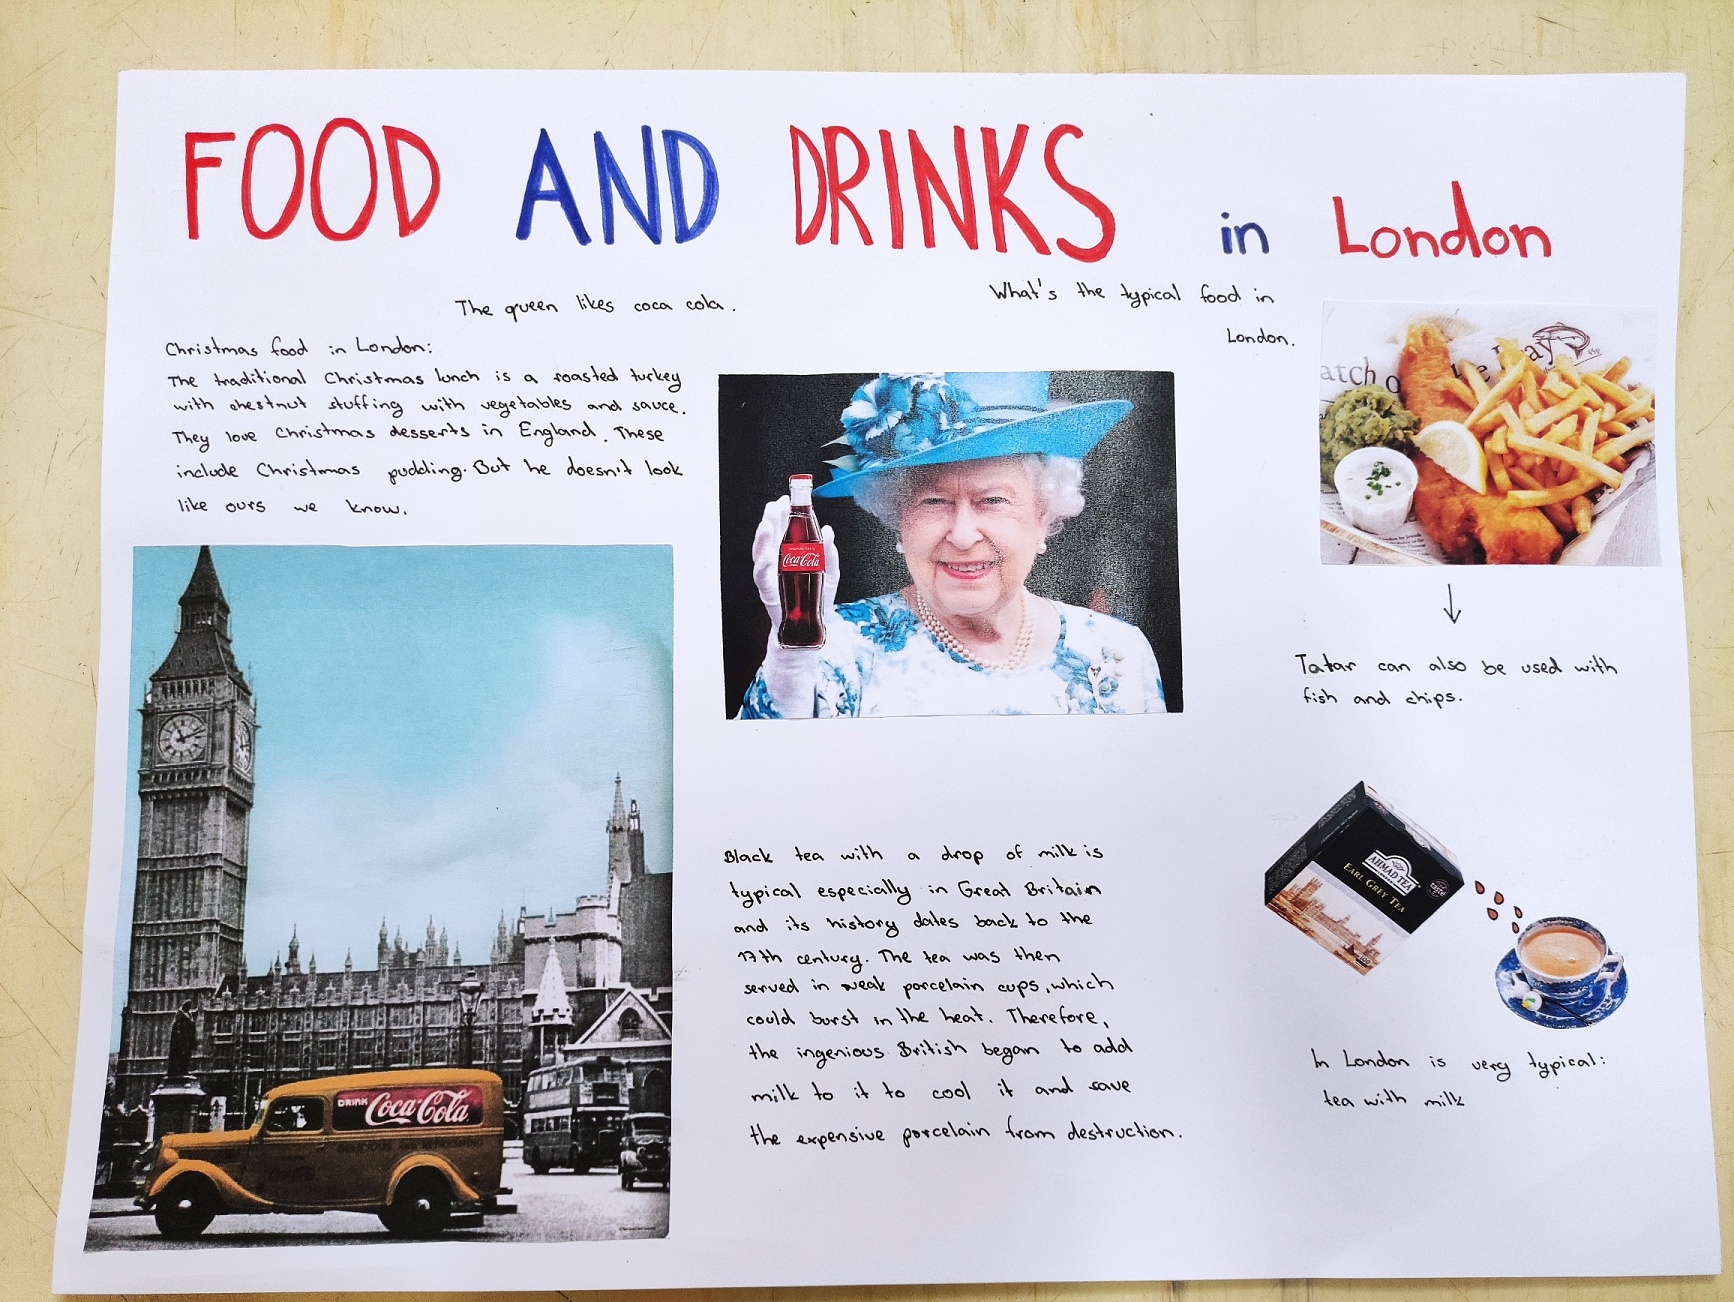 FOOD AND DRINKS in London
The queen likes coca cola.
What's the typical food in
London.
Christmas food in London:
The traditional Christmas lunch is a roasted turkey
with chestnut stuffing with vegetables and sauce.
They love Christmas desserts in England. These
include Christmas pudding. But he doesn't look
like ours we know.
Coca-Cola
atch o
Tatar can also be used with
fish and chips.
DRINK Coca-Cola
Black tea with a drop of milk is
typical especially in Great Britain
and its history dates back to the
17th century. The tea was then
served in weak porcelain cups, which
could burst in the heat. Therefore,
the ingenious British began to add
milk to it to cool it and save
the expensive porcelain from destruction.
AHMAD TEA
EARL GREY TEA
In London is very typical:
tea with milk